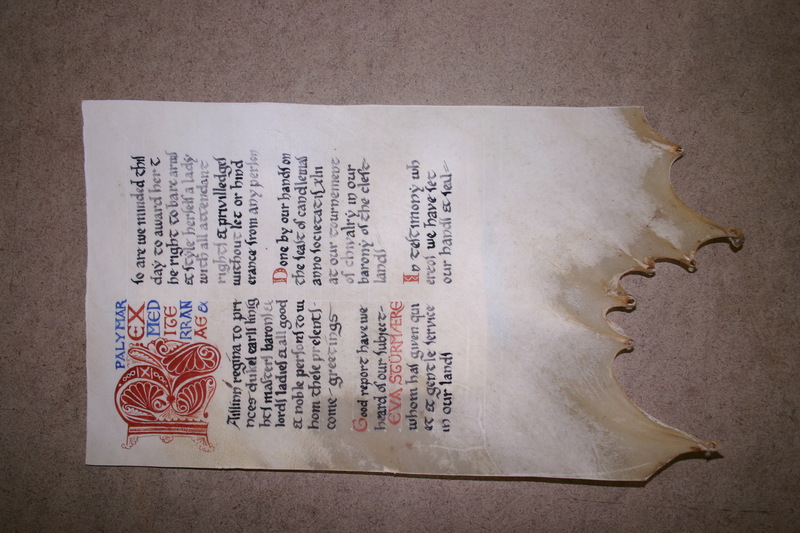 PALYMAR
EX
MED
ITE
RRAN
AE &
Aislinn regina to pri
nces dukes earls knig
hts masters barons &
lords ladies & all good
& noble persons to w
hom these presents
come greetings
Good report have we
heard of our subject
EVA STURMÆRE
whom has given qui
et & gentle service
in our lands
so are we minded this
day to award her t
he right to bare arms
& style herself a lady
with all attendant
rights & privilledges
without let or hind
erance from any person
Done by our hands on
the feast of candlemas
anno societatis xln
at our tournement
of chivalry in our
barony of the cleft
lands
In testimony wh
ereof we have set
our hands & seal